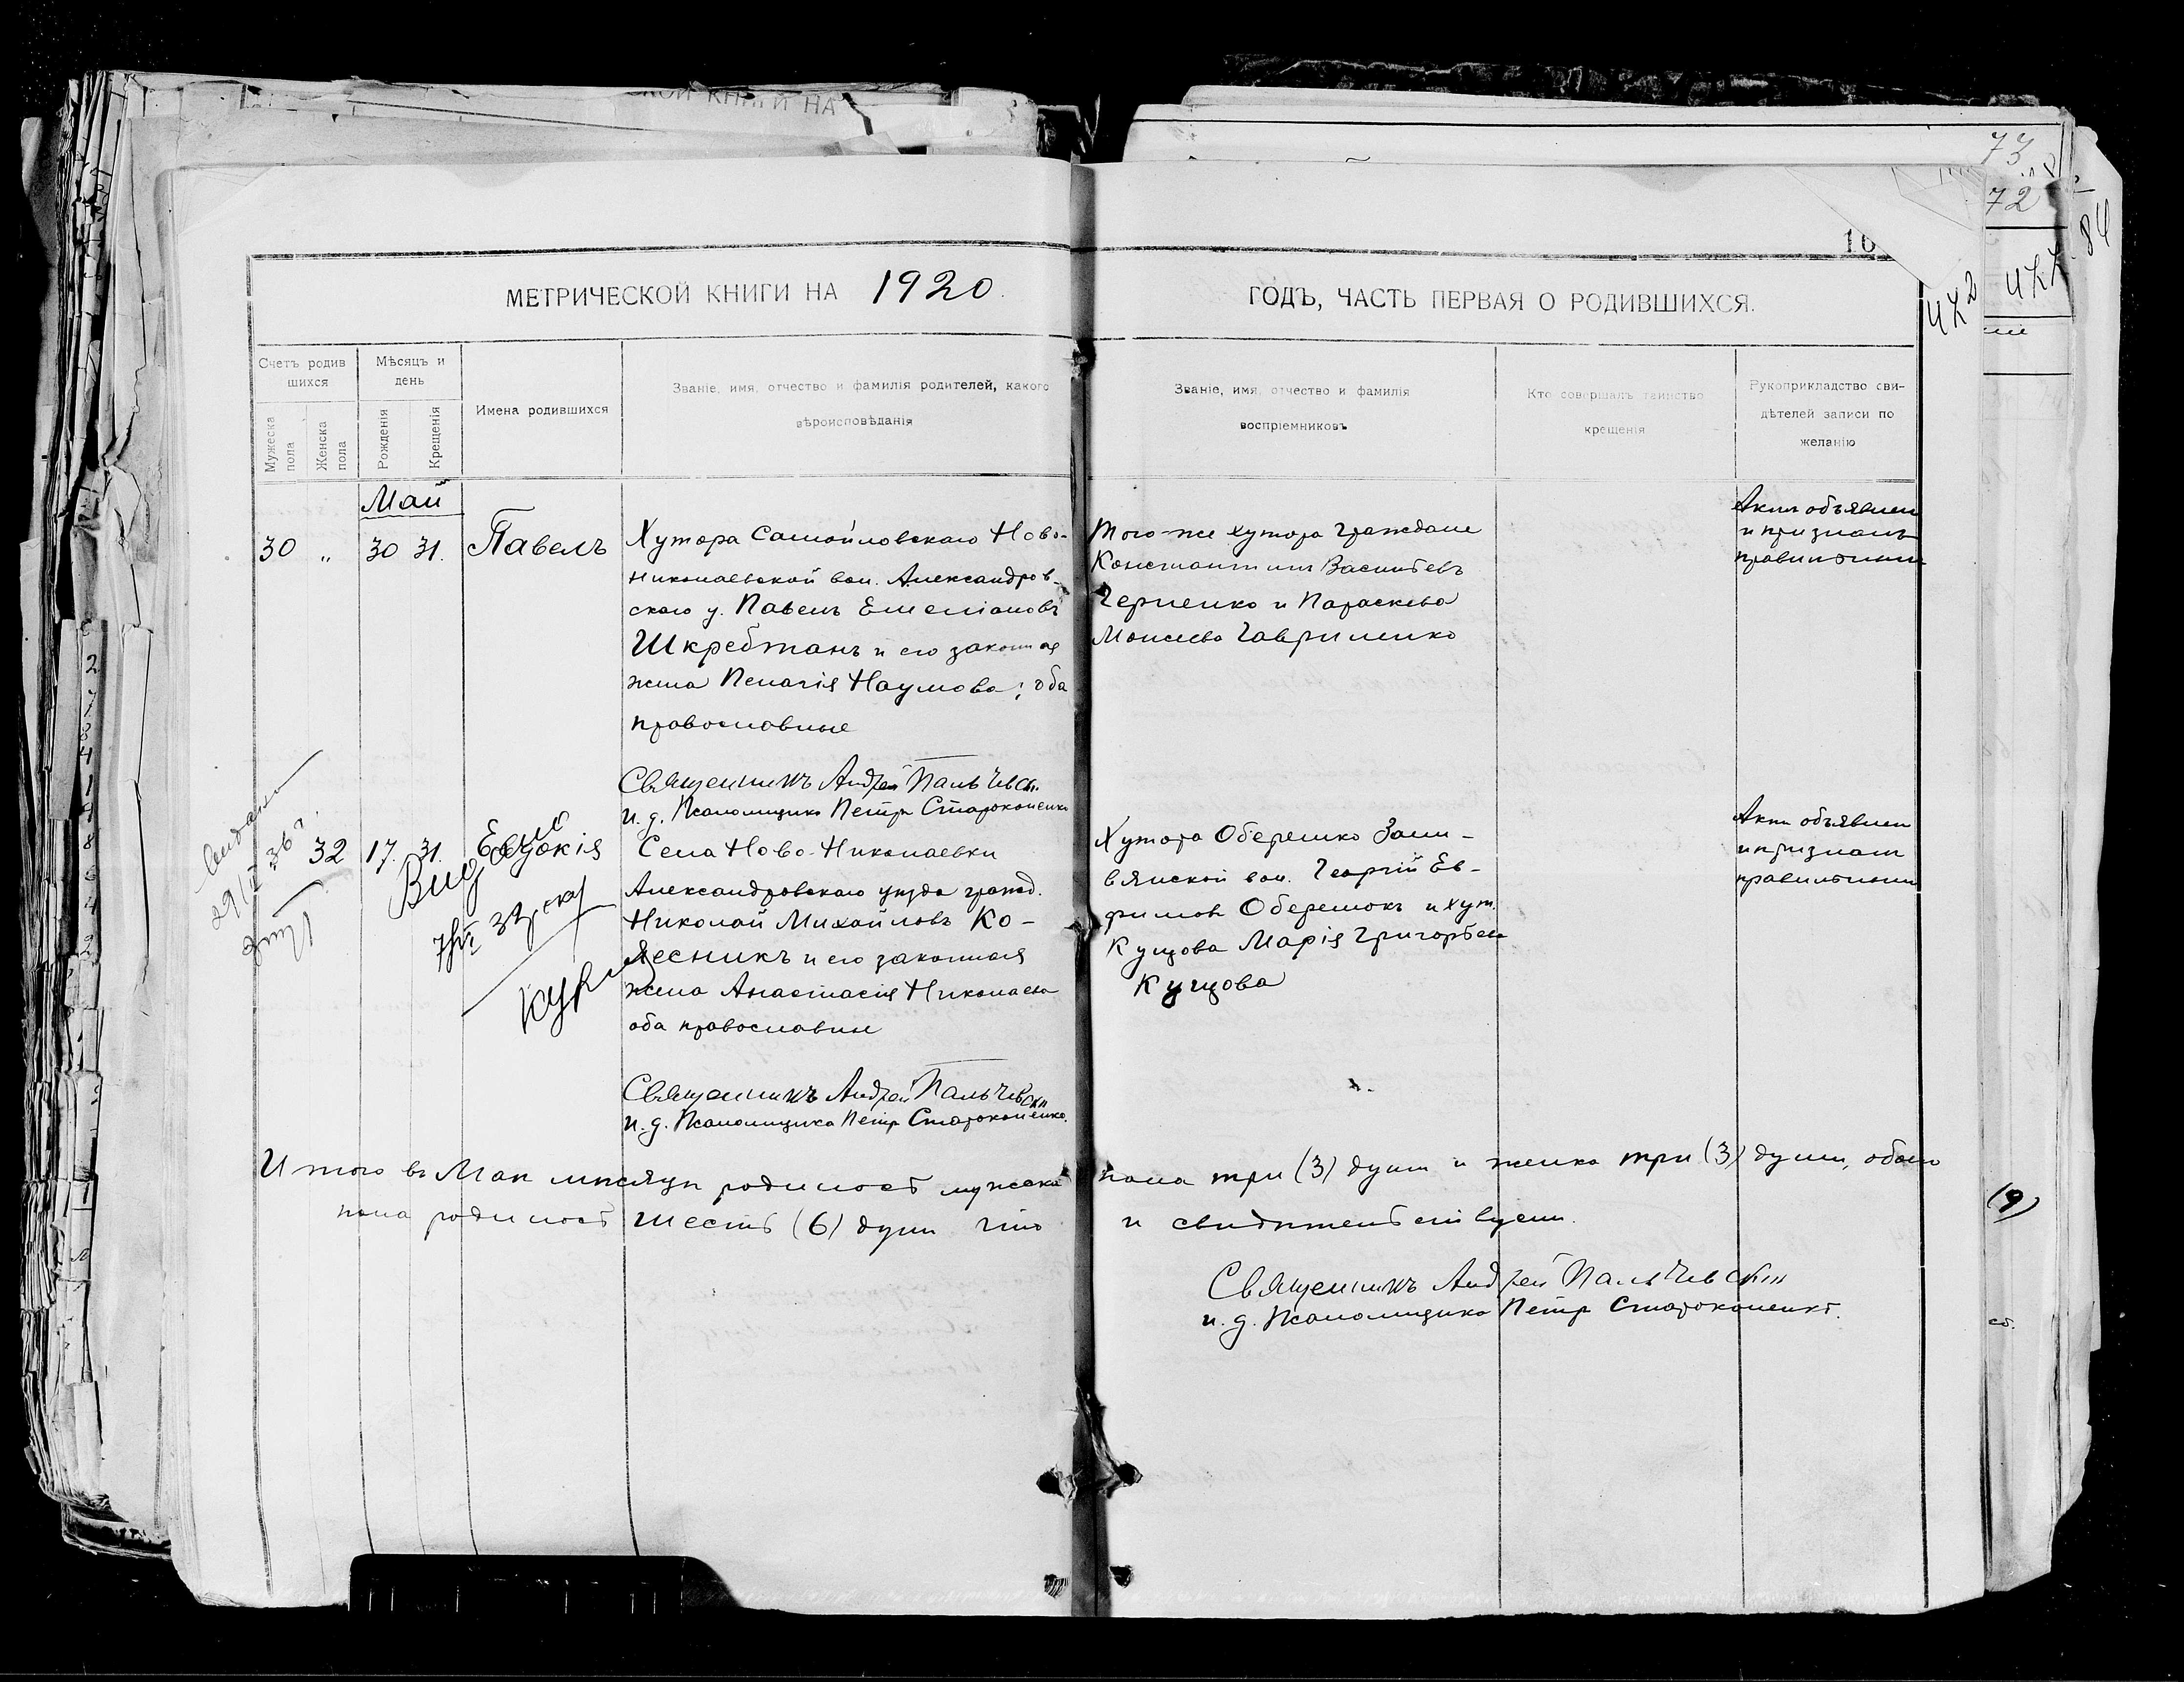 КОЙ КНИГИ НА
73
72
84
10
472
МЕТРИЧЕСКОЙ КНИГИ НА 1920.
ГОДЪ, ЧАСТЬ ПЕРВАЯ О РОДИВШИХСЯ.
Счетъ родив
шихся
Мужеска
пола
Женска
пола
Мѣсяцъ и
день
Рожденія
Крещенія
Имена родившихся
Званіе, имя, отчество и фамилія родителей, какого
вѣроисповѣданія
Званіе, имя, отчество и фамилія
воспріемниковъ
Кто совершалъ таинство
крещенія
Рукоприкладство сви-
дѣтелей записи по
желанію
Май
30 „ 30 31. Павелъ
Хутора Самойловскаго Ново-
николаевской вол. Александров-
скаго у. Павелъ Емеліановъ
Шкребтанъ и его законная
жена Пелагія Наумова; оба
православные
Священникъ Андрей Пальчевск.
и. д. Псаломщика Петръ Староконенко
Того-же хутора граждане
Константинъ Васильевъ
Черненко и Параскева
Моисеева Гавриленко
Актъ объявленъ
и признанъ
правильнымъ
32 17. 31. Евдокія
Села Ново-Николаевки
Александровскаго уѣзда гражд.
Николай Михайловъ Ко-
лесникъ и его законная
жена Анастасія Николаева
оба православные
Священникъ Андрей Пальчевскій
и. д. Псаломщика Петръ Староконенко.
Хутора Оберемко Зали-
вянской вол. Георгій Ев-
фимовъ Оберемокъ и хут.
Кущова Марія Григорьева
Кущова
Актъ объявленъ
и признанъ
правильнымъ
29/II 36 г.
Итого въ Маѣ мѣсяцѣ родилось мужска пола три (3) души и женска три (3) души, обоего
пола родилось шесть (6) душъ что и свидѣтельствуемъ.
Священникъ Андрей Пальчевскій
и. д. Псаломщика Петръ Староконенко.
(9)